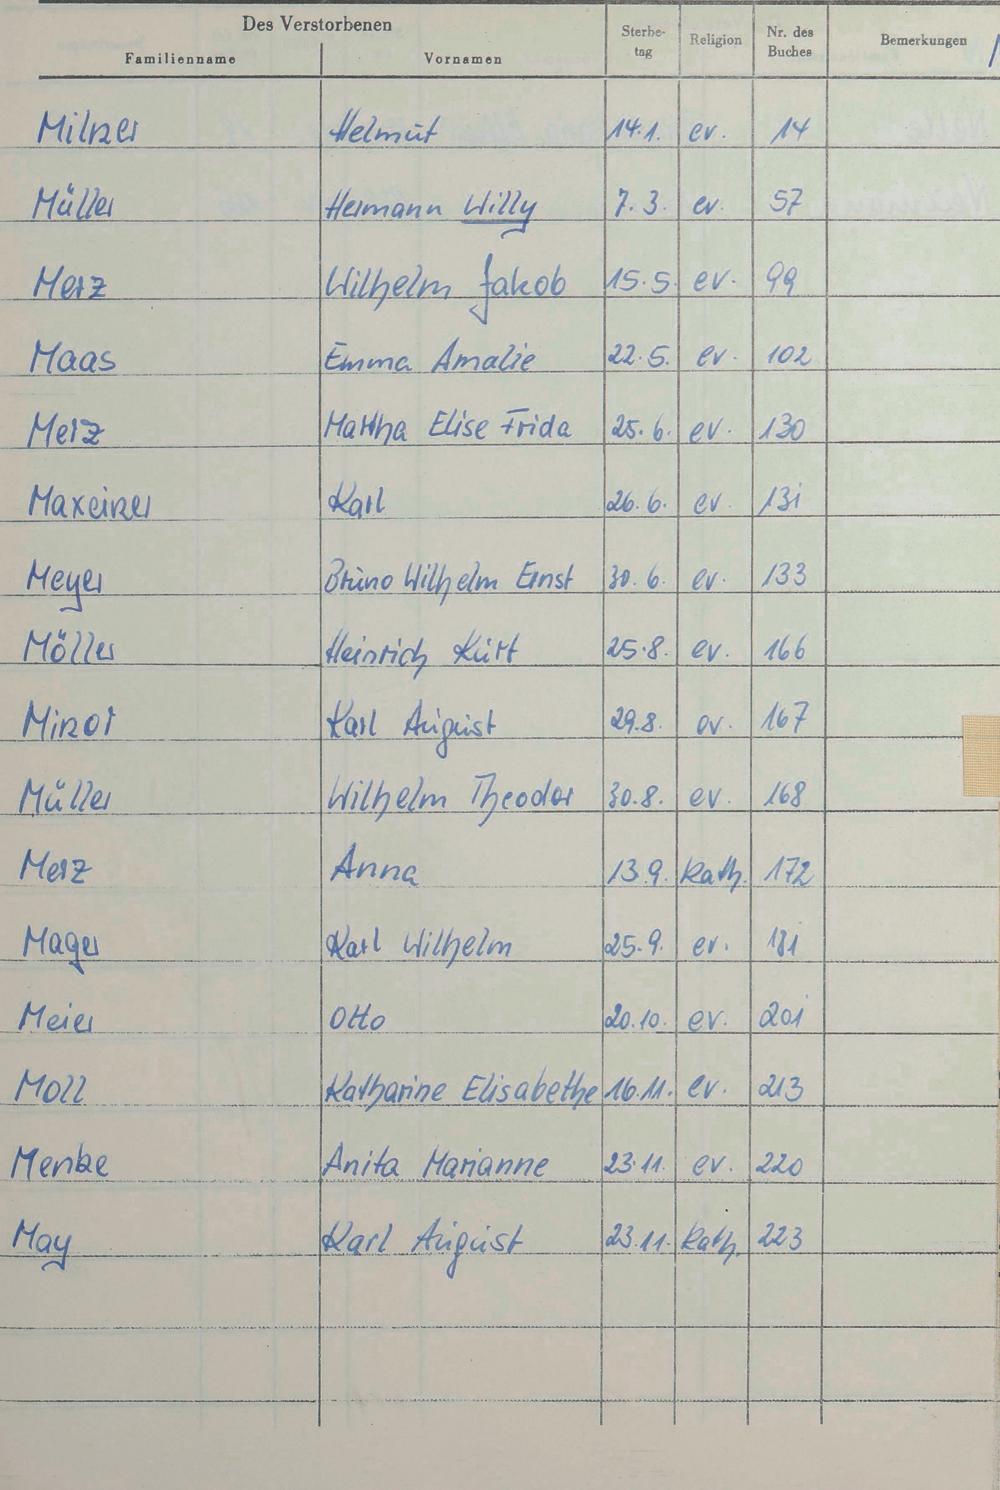 Des Verstorbenen
Familienname Vornamen Sterbe-tag Religion Nr. des Buches Bemerkungen
Milzer Helmut 14.1. ev. 14
Müller Hermann Willy 7.3. ev. 57
Merz Wilhelm Jakob 15.5. ev. 99
Maas Emma Amalie 22.5. ev. 102
Merz Martha Elise Frida 25.6. ev. 130
Maxeiner Karl 26.6. ev. 131
Meyer Bruno Wilhelm Ernst 30.6. ev. 133
Möller Heinrich Kurt 25.8. ev. 166
Minor Karl August 29.8. ev. 167
Müller Wilhelm Theodor 30.8. ev. 168
Merz Anna 13.9. Kath. 172
Mager Karl Wilhelm 25.9. ev. 181
Meier Otto 20.10. ev. 201
Moll Katharine Elisabethe 16.11. ev. 213
Menke Anita Marianne 23.11. ev. 220
May Karl August 23.11. Kath. 223